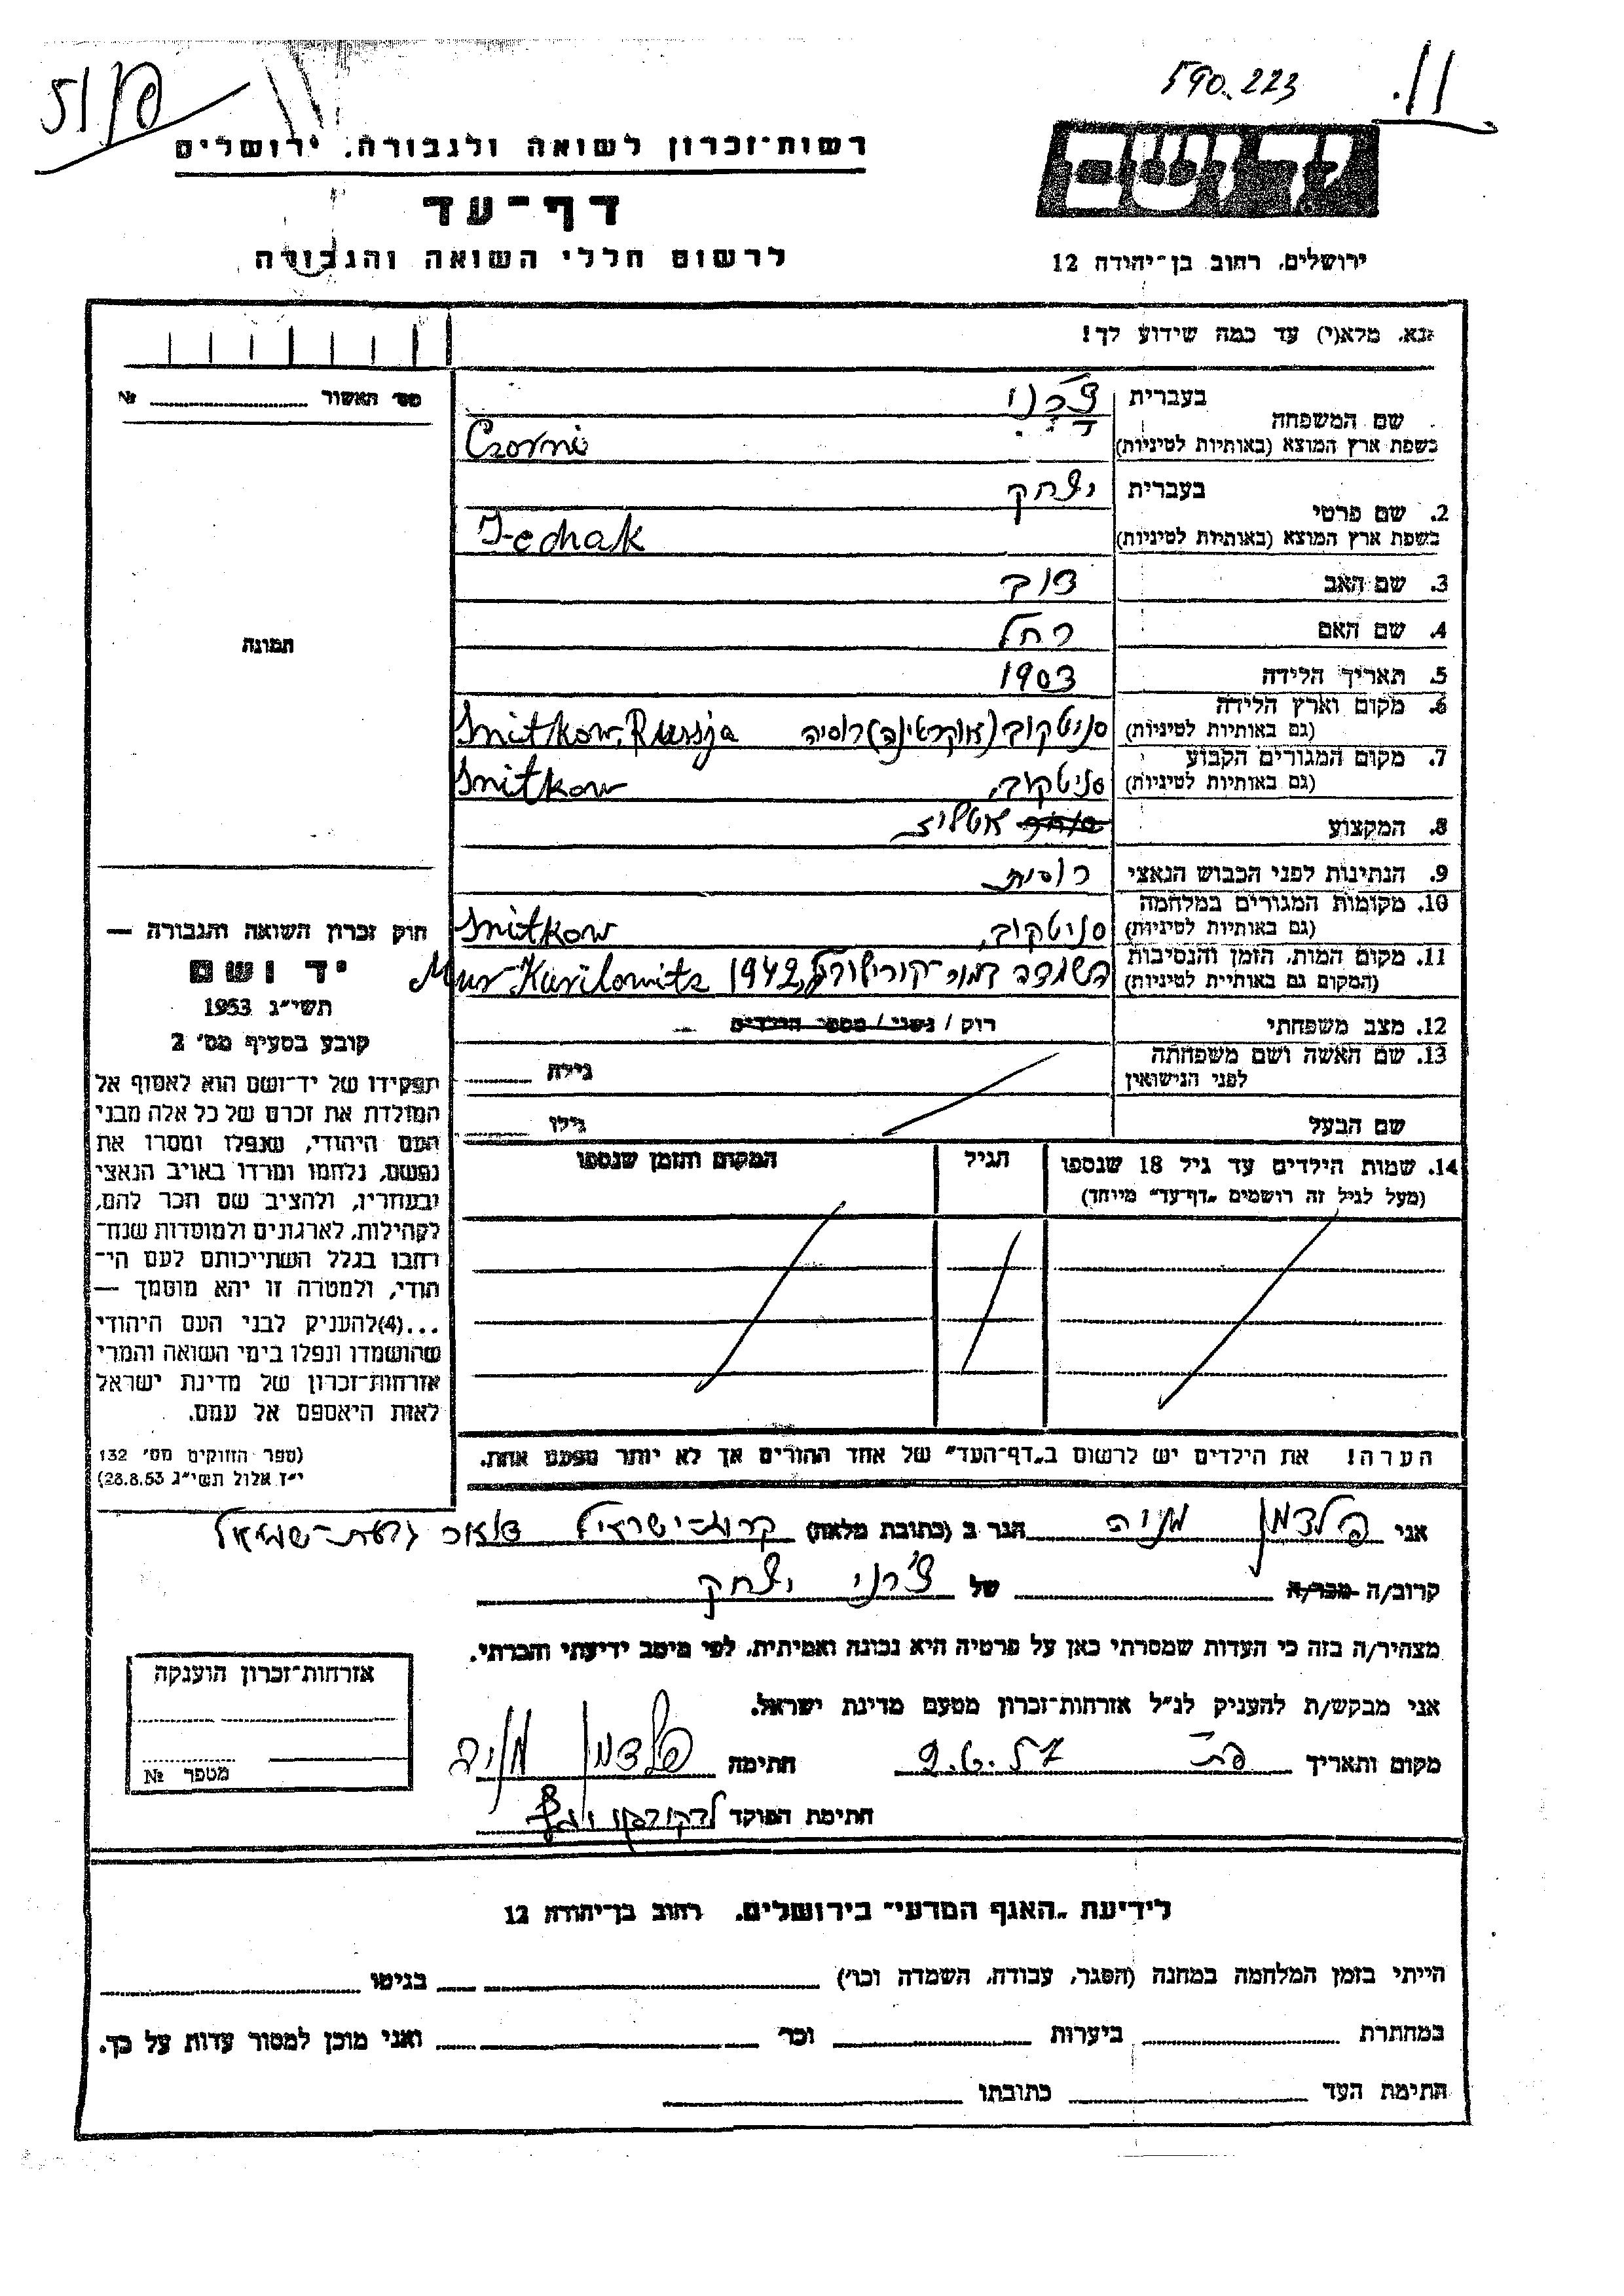 590.223
11.
רשות־זכרון לשואה ולגבורה, ירושלים
דף־עד
לרשום חללי השואה והגבורה
יד ושם
ירושלים, רחוב בן־יהודה 12
נא, מלא(י) עד כמה שידוע לך!
מס׳ האשור № 
תמונה
שם המשפחה
בעברית צ׳רני
בשפת ארץ המוצא (באותיות לטיניות) Czorni
2. שם פרטי
בעברית יצחק
בשפת ארץ המוצא (באותיות לטיניות) Icchak
3. שם האב דוב
4. שם האם רחל
5. תאריך הלידה 1903
6. מקום וארץ הלידה (גם באותיות לטיניות) סניטקוב (אוקראינה) רוסיה Snitkow, Russja
7. מקום המגורים הקבוע (גם באותיות לטיניות) סניטקוב, Snitkow
8. המקצוע אטליז
9. הנתינות לפני הכבוש הנאצי רוסית
10. מקומות המגורים במלחמה (גם באותיות לטיניות) סניטקוב, Snitkow
11. מקום המות, הזמן והנסיבות (המקום גם באותיות לטיניות) הושמדה 1942, Mur-Kurilowitz
12. מצב משפחתי רוק / נשוי / מספר הילדים
13. שם האשה ושם משפחתה לפני הנישואין גילה
שם הבעל גילו
14. שמות הילדים עד גיל 18 שנספו הגיל המקום והזמן שנספו
(מעל לגיל זה רושמים „דף־עד״ מיוחד)
הערה! את הילדים יש לרשום ב„דף־העד״ של אחד ההורים אך לא יותר מפעם אחת.
חוק זכרון השואה והגבורה —
יד ושם
תשי״ג 1953
קובע בסעיף מס׳ 2
תפקידו של יד־ושם הוא לאסוף אל
המולדת את זכרם של כל אלה מבני
העם היהודי, שנפלו ומסרו את
נפשם, נלחמו ומרדו באויב הנאצי
ובעוזריו, ולהציב שם וזכר להם,
לקהילות, לארגונים ולמוסדות שנח־
רבו בגלל השתייכותם לעם הי־
הודי, ולמטרה זו יהא מוסמך —
...(4)להעניק לבני העם היהודי
שהושמדו ונפלו בימי השואה והמרי
אזרחות־זכרון של מדינת ישראל
לאות היאספם אל עמם.
(ספר החוקים מס׳ 132
י״ז אלול תשי״ג 28.8.53)
אני פלדמן מניה הגר ב (כתובת מלאה) קרית־ישראל דואר גבעת־שמואל
קרוב/ה מכר/ה של צ׳רני יצחק
מצהיר/ה בזה כי העדות שמסרתי כאן על פרטיה היא נכונה ואמיתית, לפי מיטב ידיעתי והכרתי.
אני מבקש/ת להעניק לנ״ל אזרחות־זכרון מטעם מדינת ישראל.
מקום ותאריך חתימה פלדמן מניה
חתימת הפוקד
אזרחות־זכרון הוענקה
מספר №
לידיעת „האגף המדעי״ בירושלים, רחוב בן־יהודה 12
הייתי בזמן המלחמה במחנה (הסגר, עבודה, השמדה וכו׳) בגיטו
במחתרת ביערות וכו׳ ואני מוכן למסור עדות על כך.
חתימת העד כתובתו